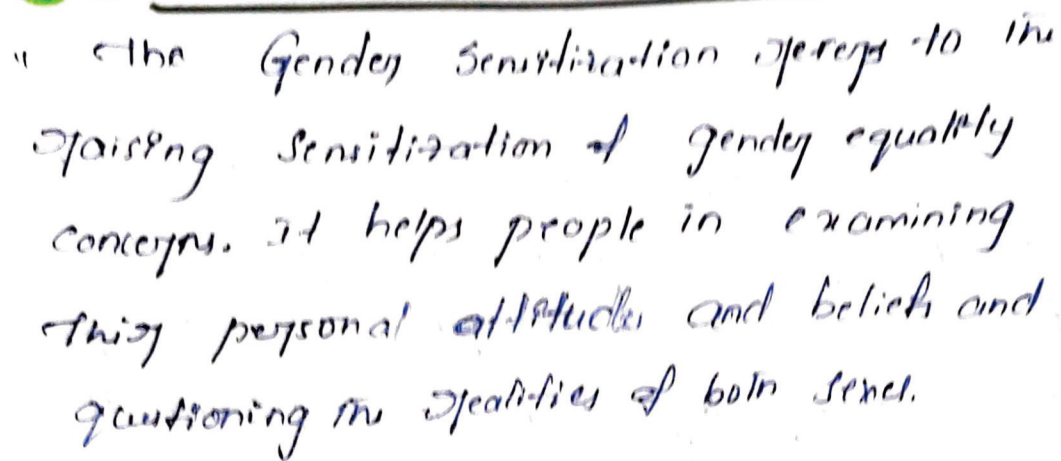 " The Gender Sensitization referrs to the
raising Sensitization of gender equality
concerns. It helps people in examining
Their personal attitudes and beliefs and
questioning the realities of both sexes.